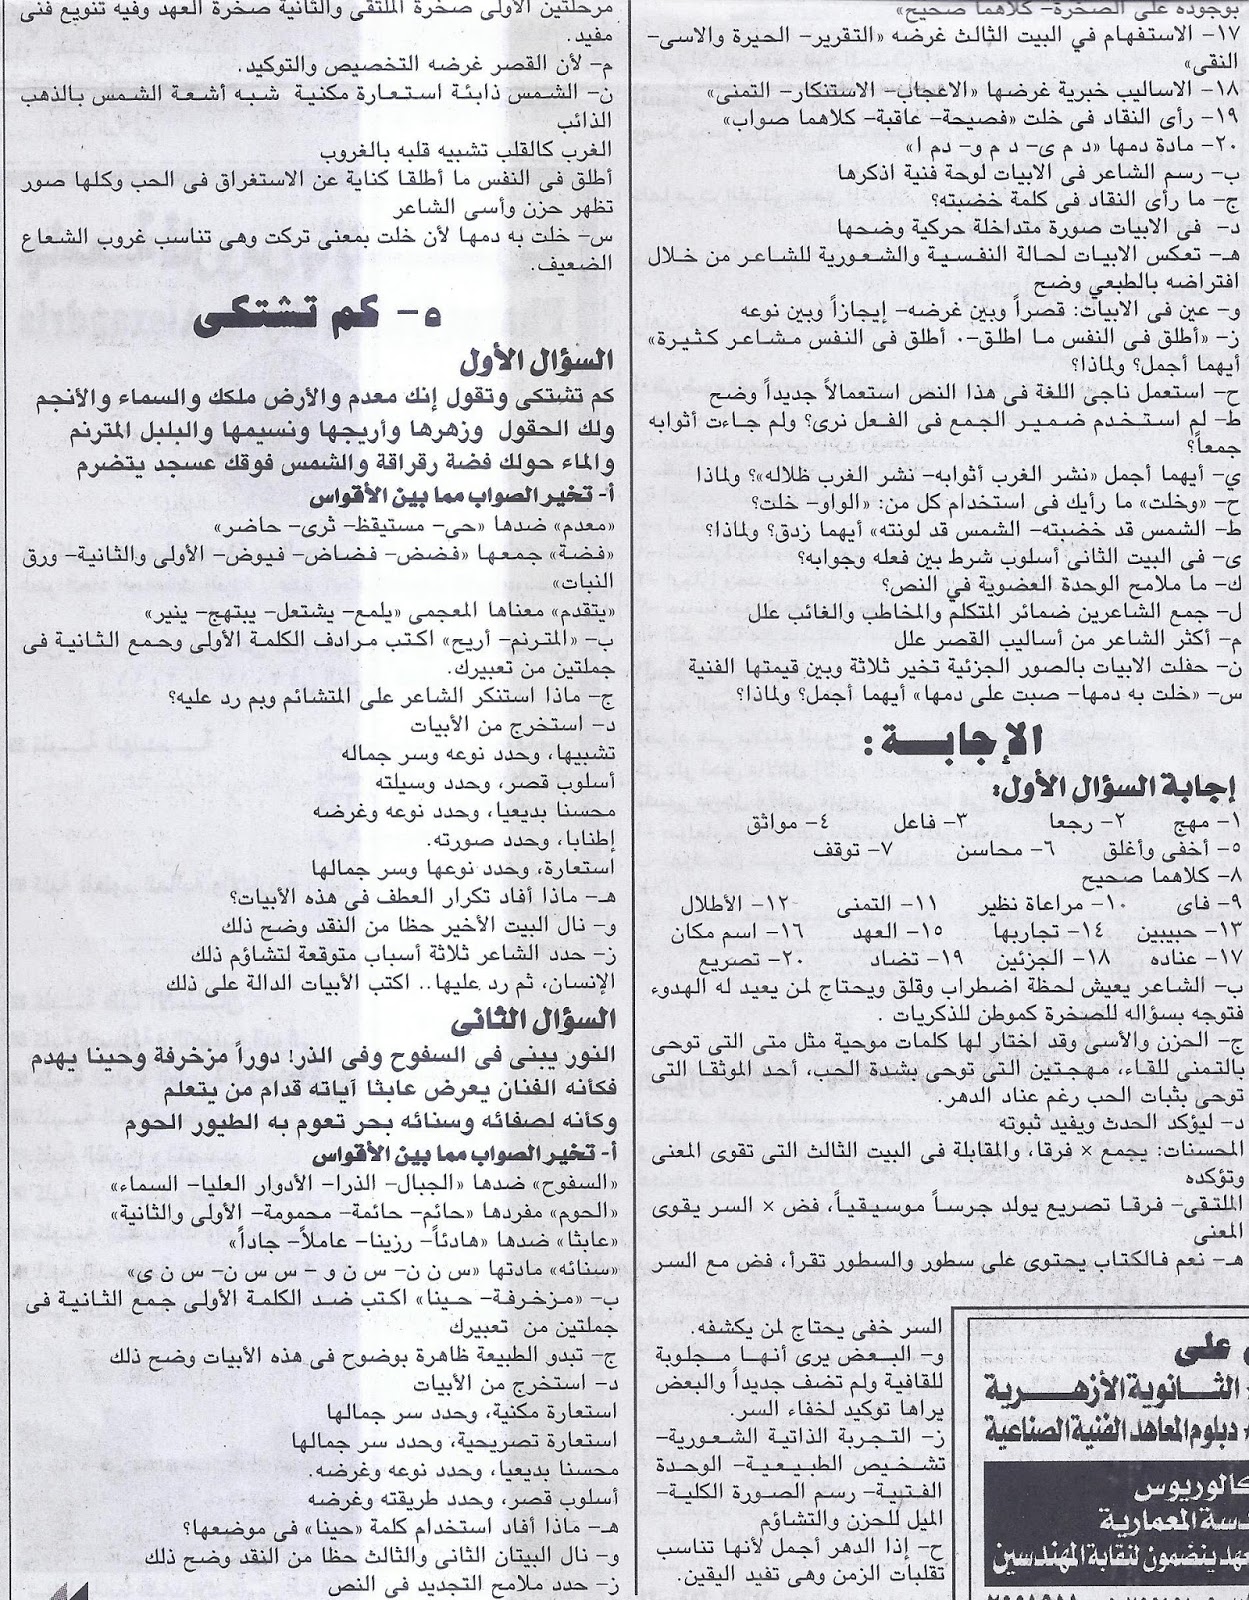 بوجوده على الصخرة– كلاهما صحيح»
١٧– الاستفهام في البيت الثالث غرضه «التقرير– الحيرة والاسى–
النفى»
١٨– الاساليب خبرية غرضها «الاعجاب– الاستنكار– التمنى»
١٩– رأى النقاد فى خلت «فصيحة– عاقبة– كلاهما صواب»
٢٠– مادة دمها «د م ى– د م و– د م ا»
ب– رسم الشاعر فى الابيات لوحة فنية اذكرها
ج– ما رأى النقاد فى كلمة خضبته؟
د– فى الابيات صورة متداخلة حركية وضحها
هـ– تعكس الابيات لحالة النفسية والشعورية للشاعر من خلال
افتراضه بالطبعي وضح
و– عين فى الابيات: قصراً وبين غرضه– إيجازاً وبين نوعه
ز– «أطلق فى النفس ما اطلق–٠ أطلق فى النفس مشاعر كثيرة»
أيهما أجمل؟ ولماذا؟
ح– استعمل ناجى اللغة فى هذا النص استعمالاً جديداً وضح
ط– لم استخدم ضمير الجمع فى الفعل نرى؟ ولم جاءت أثوابه
جمعاً؟
ي– أيهما أجمل «نشر الغرب أثوابه– نشر الغرب ظلاله»؟ ولماذا
ح– «وخلت» ما رأيك فى استخدام كل من: «الواو– خلت؟
ط– الشمس قد خضبته– الشمس قد لونته» أيهما زدق؟ ولماذا؟
ى– فى البيت الثانى أسلوب شرط بين فعله وجوابه؟
ك– ما ملامح الوحدة العضوية في النص؟
ل– جمع الشاعرين ضمائر المتكلم والمخاطب والغائب علل
م– أكثر الشاعر من أساليب القصر علل
ن– حفلت الابيات بالصور الجزئية تخير ثلاثة وبين قيمتها الفنية
س– «خلت به دمها– صبت على دمها» أيهما أجمل؟ ولماذا؟
الإجابة:
إجابة السؤال الأول:
١– مهج ٢– رجعا ٣– فاعل ٤– مواثق
٥– أخفى وأغلق ٦– محاسن ٧– توقف
٨– كلاهما صحيح
٩– فاى ١٠– مراعاة نظير ١١– التمنى ١٢– الأطلال
١٣– حبيبين ١٤– تجاربها ١٥– العهد ١٦– اسم مكان
١٧– عناده ١٨– الجزئين ١٩– تضاد ٢٠– تصريع
ب– الشاعر يعيش لحظة اضطراب وقلق ويحتاج لمن يعيد له الهدوء
فتوجه بسؤاله للصخرة كموطن للذكريات .
ج– الحزن والأسى وقد اختار لها كلمات موحية مثل متى التى توحى
بالتمنى للقاء، مهجتين التى توحى بشدة الحب، أحد الموثقا التى
توحى بثبات الحب رغم عناد الدهر.
د– ليؤكد الحدث ويفيد ثبوته
المحسنات: يجمع × فرقا، والمقابلة فى البيت الثالث التى تقوى المعنى
وتؤكده
الملتقى– فرقا تصريع يولد جرساً موسيقياً، فض × السر يقوى
المعنى
هـ– نعم فالكتاب يحتوى على سطور والسطور تقرأ، فض مع السر
السر خفى يحتاج لمن يكشفه.
و– البعض يرى أنها مجلوبة
للقافية ولم تضف جديداً والبعض
يراها توكيد لخفاء السر.
ز– التجربة الذاتية الشعورية–
تشخيص الطبيعية– الوحدة
الفتبية– رسم الصورة الكلية–
الميل للحزن والتشاؤم
ح– إذا الدهر أجمل لأنها تناسب
تقلبات الزمن وهى تفيد اليقين.
على
الثانوية الأزهرية
دبلوم المعاهد الفنية الصناعية
كالوريوس
المعمارية
ينضمون لنقابة المهندسين
مرحلتين الأولى صخرة الملتقى والثانية صخرة العهد وفيه تنويع فنى
مفيد.
م– لأن القصر غرضه التخصيص والتوكيد.
ن– الشمس ذابئة استعارة مكنية شبه أشعة الشمس بالذهب
الذائب
الغرب كالقلب تشبيه قلبه بالغروب
أطلق فى النفس ما أطلقا كناية عن الاستغراق فى الحب وكلها صور
تظهر حزن وأسى الشاعر
س– خلت به دمها لأن خلت بمعنى تركت وهى تناسب غروب الشعاع
الضعيف.
٥– كم تشتكى
السؤال الأول
كم تشتكى وتقول إنك معدم والأرض ملكك والسماء والأنجم
ولك الحقول وزهرها وأريجها ونسيمها والبلبل المترنم
والماء حولك فضة رقراقة والشمس فوقك عسجد يتضرم
أ– تخير الصواب مما بين الأقواس
«معدم» ضدها «حى– مستيقظ– ثرى– حاضر»
«فضة» جمعها «فضض– فضاض– فيوض– الأولى والثانية– ورق
النبات»
«يتقدم» معناها المعجمى «يلمع– يشتعل– يبتهج– ينير»
ب– «المترنم– أريح» اكتب مرادف الكلمة الأولى وحمع الثانية فى
جملتين من تعبيرك.
ج– ماذا استنكر الشاعر على المتشائم وبم رد عليه؟
د– استخرج من الأبيات
تشبيها، وحدد نوعه وسر جماله
أسلوب قصر، وحدد وسيلته
محسنا بديعيا، وحدد نوعه وغرضه
إطنابا، وحدد صورته.
استعارة، وحدد نوعها وسر جمالها
هـ– ماذا أفاد تكرار العطف فى هذه الأبيات؟
و– نال البيت الأخير حظا من النقد وضح ذلك
ز– حدد الشاعر ثلاثة أسباب متوقعة لتشاؤم ذلك
الإنسان، ثم رد عليها.. اكتب الأبيات الدالة على ذلك
السؤال الثانى
النور يبنى فى السفوح وفى الذر! دوراً مزخرفة وحينا يهدم
فكأنه الفنان يعرض عابثا آياته قدام من يتعلم
وكأنه لصفائه وسنائه بحر تعوم به الطيور الحوم
أ– تخير الصواب مما بين الأقواس
«السفوح» ضدها «الجبال– الذرا– الأدوار العليا– السماء»
«الحوم» مفردها «حائم– حائمة– محمومة– الأولى والثانية»
«عابثا» ضدها «هادئاً– رزينا– عاملاً– جاداً»
«سنائه» مادتها «س ن ن– س ن و – س س ن– س ن ى»
ب– «مزخرفة– حينا» اكتب ضد الكلمة الأولى جمع الثانية فى
جملتين من تعبيرك
ج– تبدو الطبيعة ظاهرة بوضوح فى هذه الأبيات وضح ذلك
د– استخرج من الأبيات
استعارة مكنية، وحدد سر جمالها
استعارة تصريحية، وحدد سر جمالها
محسنا بديعيا، وحدد نوعه وغرضه.
أسلوب قصر، وحدد طريقته وغرضه
هـ– ماذا أفاد استخدام كلمة «حينا» فى موضعها؟
و– نال البيتان الثانى والثالث حظا من النقد وضح ذلك
ز– حدد ملامح التجديد فى النص